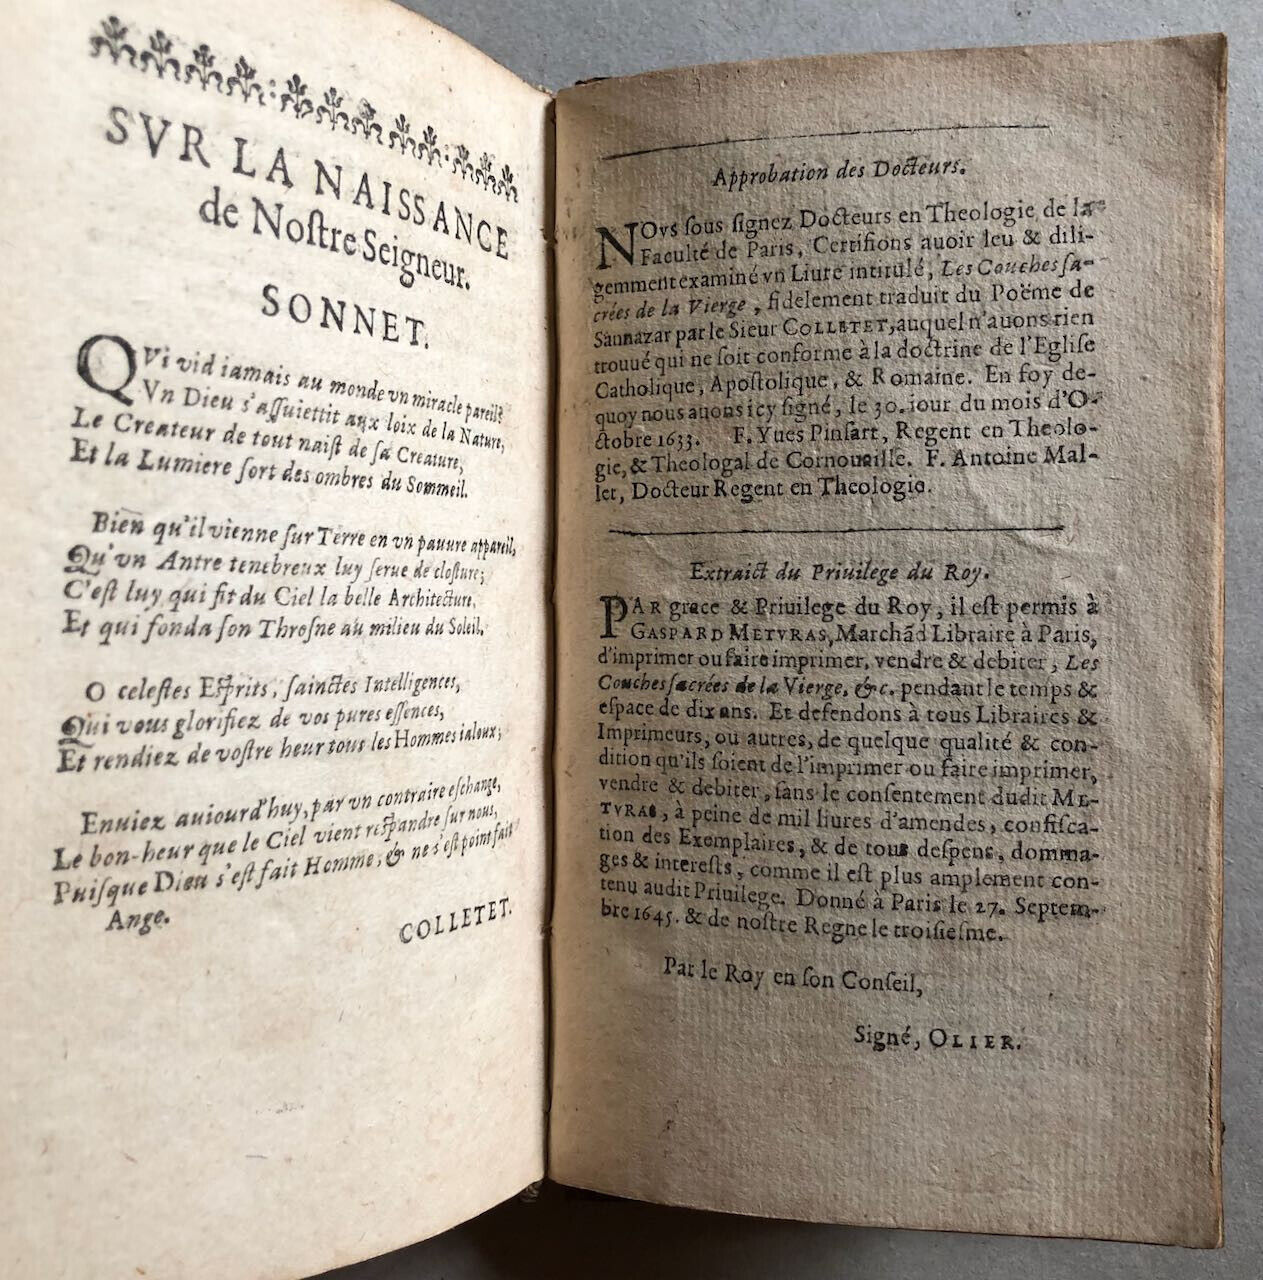 SVR LA NAISSANCE
de Noſtre Seigneur.
SONNET.
QVi vid iamais au monde vn miracle pareil?
Vn Dieu s'aſſuiettit aux loix de la Nature,
Le Createur de tout naiſt de ſa Creature,
Et la Lumiere ſort des ombres du Sommeil.
Bien qu'il vienne ſur Terre en vn pauure appareil,
Qu'vn Antre tenebreux luy ſerue de cloſture;
C'eſt luy qui fit du Ciel la belle Architecture,
Et qui fonda ſon Throſne au milieu du Soleil.
O celeſtes Eſprits, ſainctes Intelligences,
Qui vous glorifiez de vos pures eſſences,
Et rendiez de voſtre heur tous les Hommes ialoux;
Enuiez auiourd'huy, par vn contraire eſchange,
Le bon-heur que le Ciel vient reſpandre ſur nous,
Puiſque Dieu s'eſt fait Homme, & ne s'eſt point fait
Ange.
COLLETET.
Approbation des Docteurs.
NOvs ſous ſignez Docteurs en Theologie de la
Faculté de Paris, Certifions auoir leu & dili-
gemment examiné vn Liure intitulé, Les Couches ſa-
crées de la Vierge, fidelement traduit du Poëme de
Sannazar par le Sieur COLLETET, auquel n'auons rien
trouué qui ne ſoit conforme à la doctrine de l'Egliſe
Catholique, Apoſtolique, & Romaine. En foy de-
quoy nous auons icy ſigné, le 30. iour du mois d'O-
ctobre 1633. F. Yues Pinſart, Regent en Theolo-
gie, & Theologal de Cornoueille. F. Antoine Mal-
let, Docteur Regent en Theologie.
Extraict du Priuilege du Roy.
PAR grace & Priuilege du Roy, il eſt permis à
GASPARD METVRAS, Marchãd Libraire à Paris,
d'imprimer ou faire imprimer, vendre & debiter, Les
Couches ſacrées de la Vierge, &c. pendant le temps &
eſpace de dix ans. Et defendons à tous Libraires &
Imprimeurs, ou autres, de quelque qualité & con-
dition qu'ils ſoient de l'imprimer ou faire imprimer,
vendre & debiter, ſans le conſentement dudit ME-
TVRAS, à peine de mil liures d'amendes, confiſca-
tion des Exemplaires, & de tous deſpens, domma-
ges & intereſts, comme il eſt plus amplement con-
tenu audit Priuilege. Donné à Paris le 27. Septem-
bre 1645. & de noſtre Regne le troiſieſme.
Par le Roy en ſon Conſeil,
Signé, OLIER.